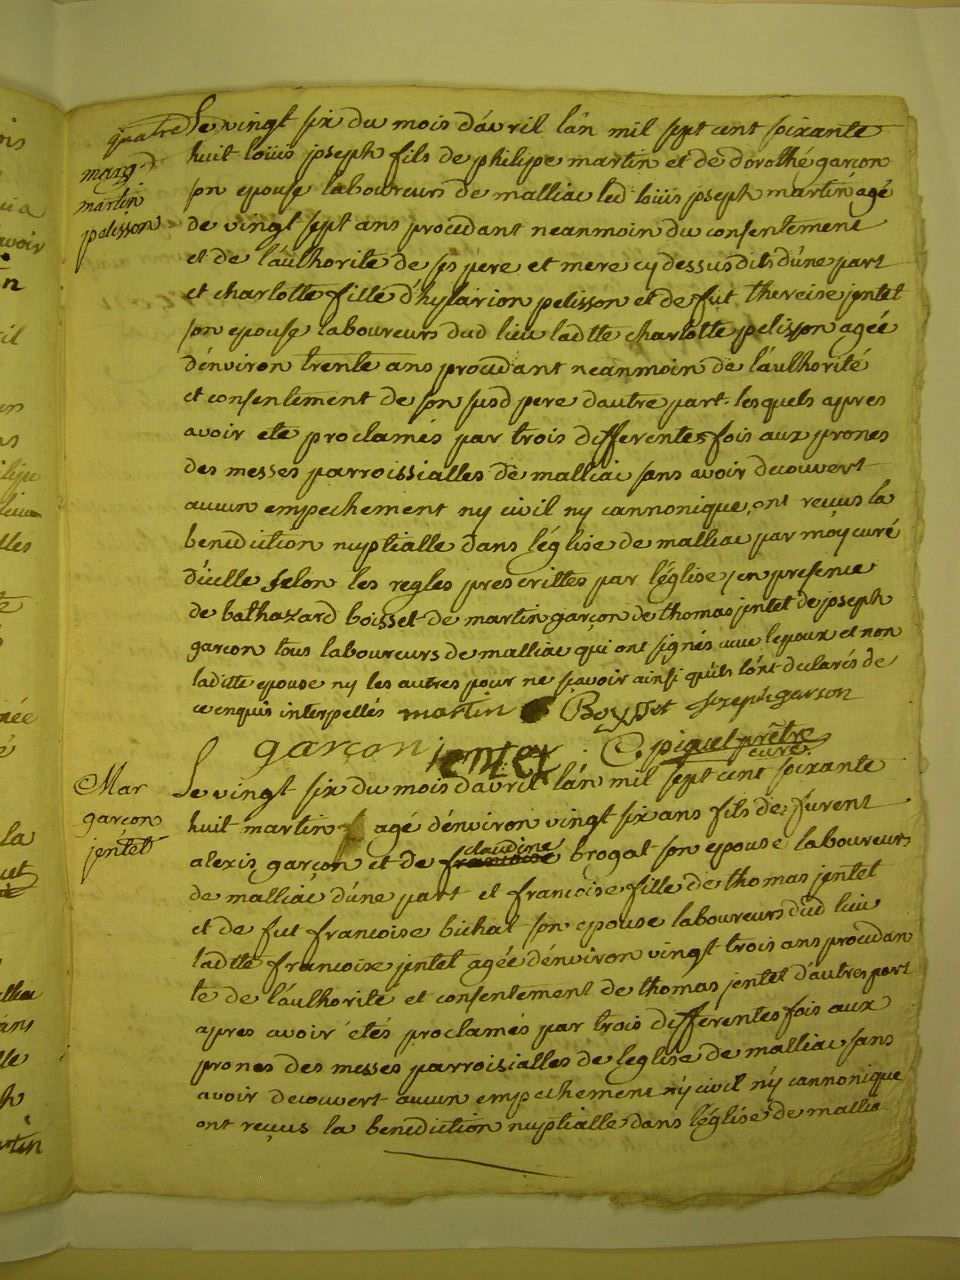 quatre Le vingt six du mois d'avril l'an mil sept cent soixante
huit loüis joseph fils de philipe martin et de dorothé garçon
marg.
martin
pelisson
son epouse laboureurs de malliac led. loüis joseph martin agé
de vingt sept ans procedant neanmoin du consentement
et de l'aulhorité de ses pere et mere cy dessus dits d'une part
et charlotte fille d'hylarion pelisson et de fut thereise jentet
son epouse laboureurs dud lieu ladtte charlotte pelisson agée
d'environ trente ans procedant neanmoin de l'aulhorité
et consentement de son susd pere d'autre part. lesquels apres
avoir eté proclamés par trois differentes fois aux prones
des messes parroissialles de malliac sans avoir decouvert
aucun empechement ny civil ny cannonique, ont reçus la
benediction nuptialle dans l'église de malliac par moy curé
d'icelle selon les regles prescrittes par l'église en presence
de balhazard boisset de martin garçon de thomas jentet de joseph
garcon tous laboureurs de malliac qui ont signés avec lepoux et non
laditte epouse ny les autres pour ne sçavoir ainsi qu'ils l'ont declarés de
ce enquis interpellés martin Boysset Joseph garcon
garçon jentet C. piquet prêtre
curé.
Mar
garcon
jentet
Le vingt six du mois d'avril l'an mil sept cent soixante
huit martin agé d'environ vingt six ans fils de furent
alexis garçon et de claudine brogat son epouse laboureurs
de malliac d'une part et francoise fille de thomas jentet
et de fut francoise bichat son epouse laboureurs dud lieu
ladtte francoise jentet agée d'environ vingt trois ans procedan
te de l'aulhorité et consentement de thomas jentet d'autres part
apres avoir etés proclamés par trois differentes fois aux
prones des messes parroisialles de leglise de malliac sans
avoir decouvert aucun empechement ny civil ny cannonique
ont reçus la benediction nuptialle dans l'église de mallia